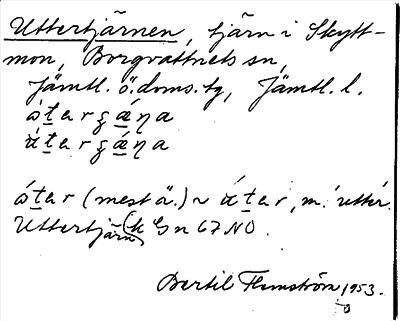 Uttertjärnen, tjärn i Skytt-
mon, Borgvattnets sn,
Jämtl. ö. doms. tg, Jämtl. l.
óṯarga̱̋ŋa
ú̇ṯarga̱̋ŋa
óṯar (mest ä.) ~ ú̇ṯar, m. 'utter'.
Uttertjärn (k Gn 67 NO.
Bertil Flemström 1953.